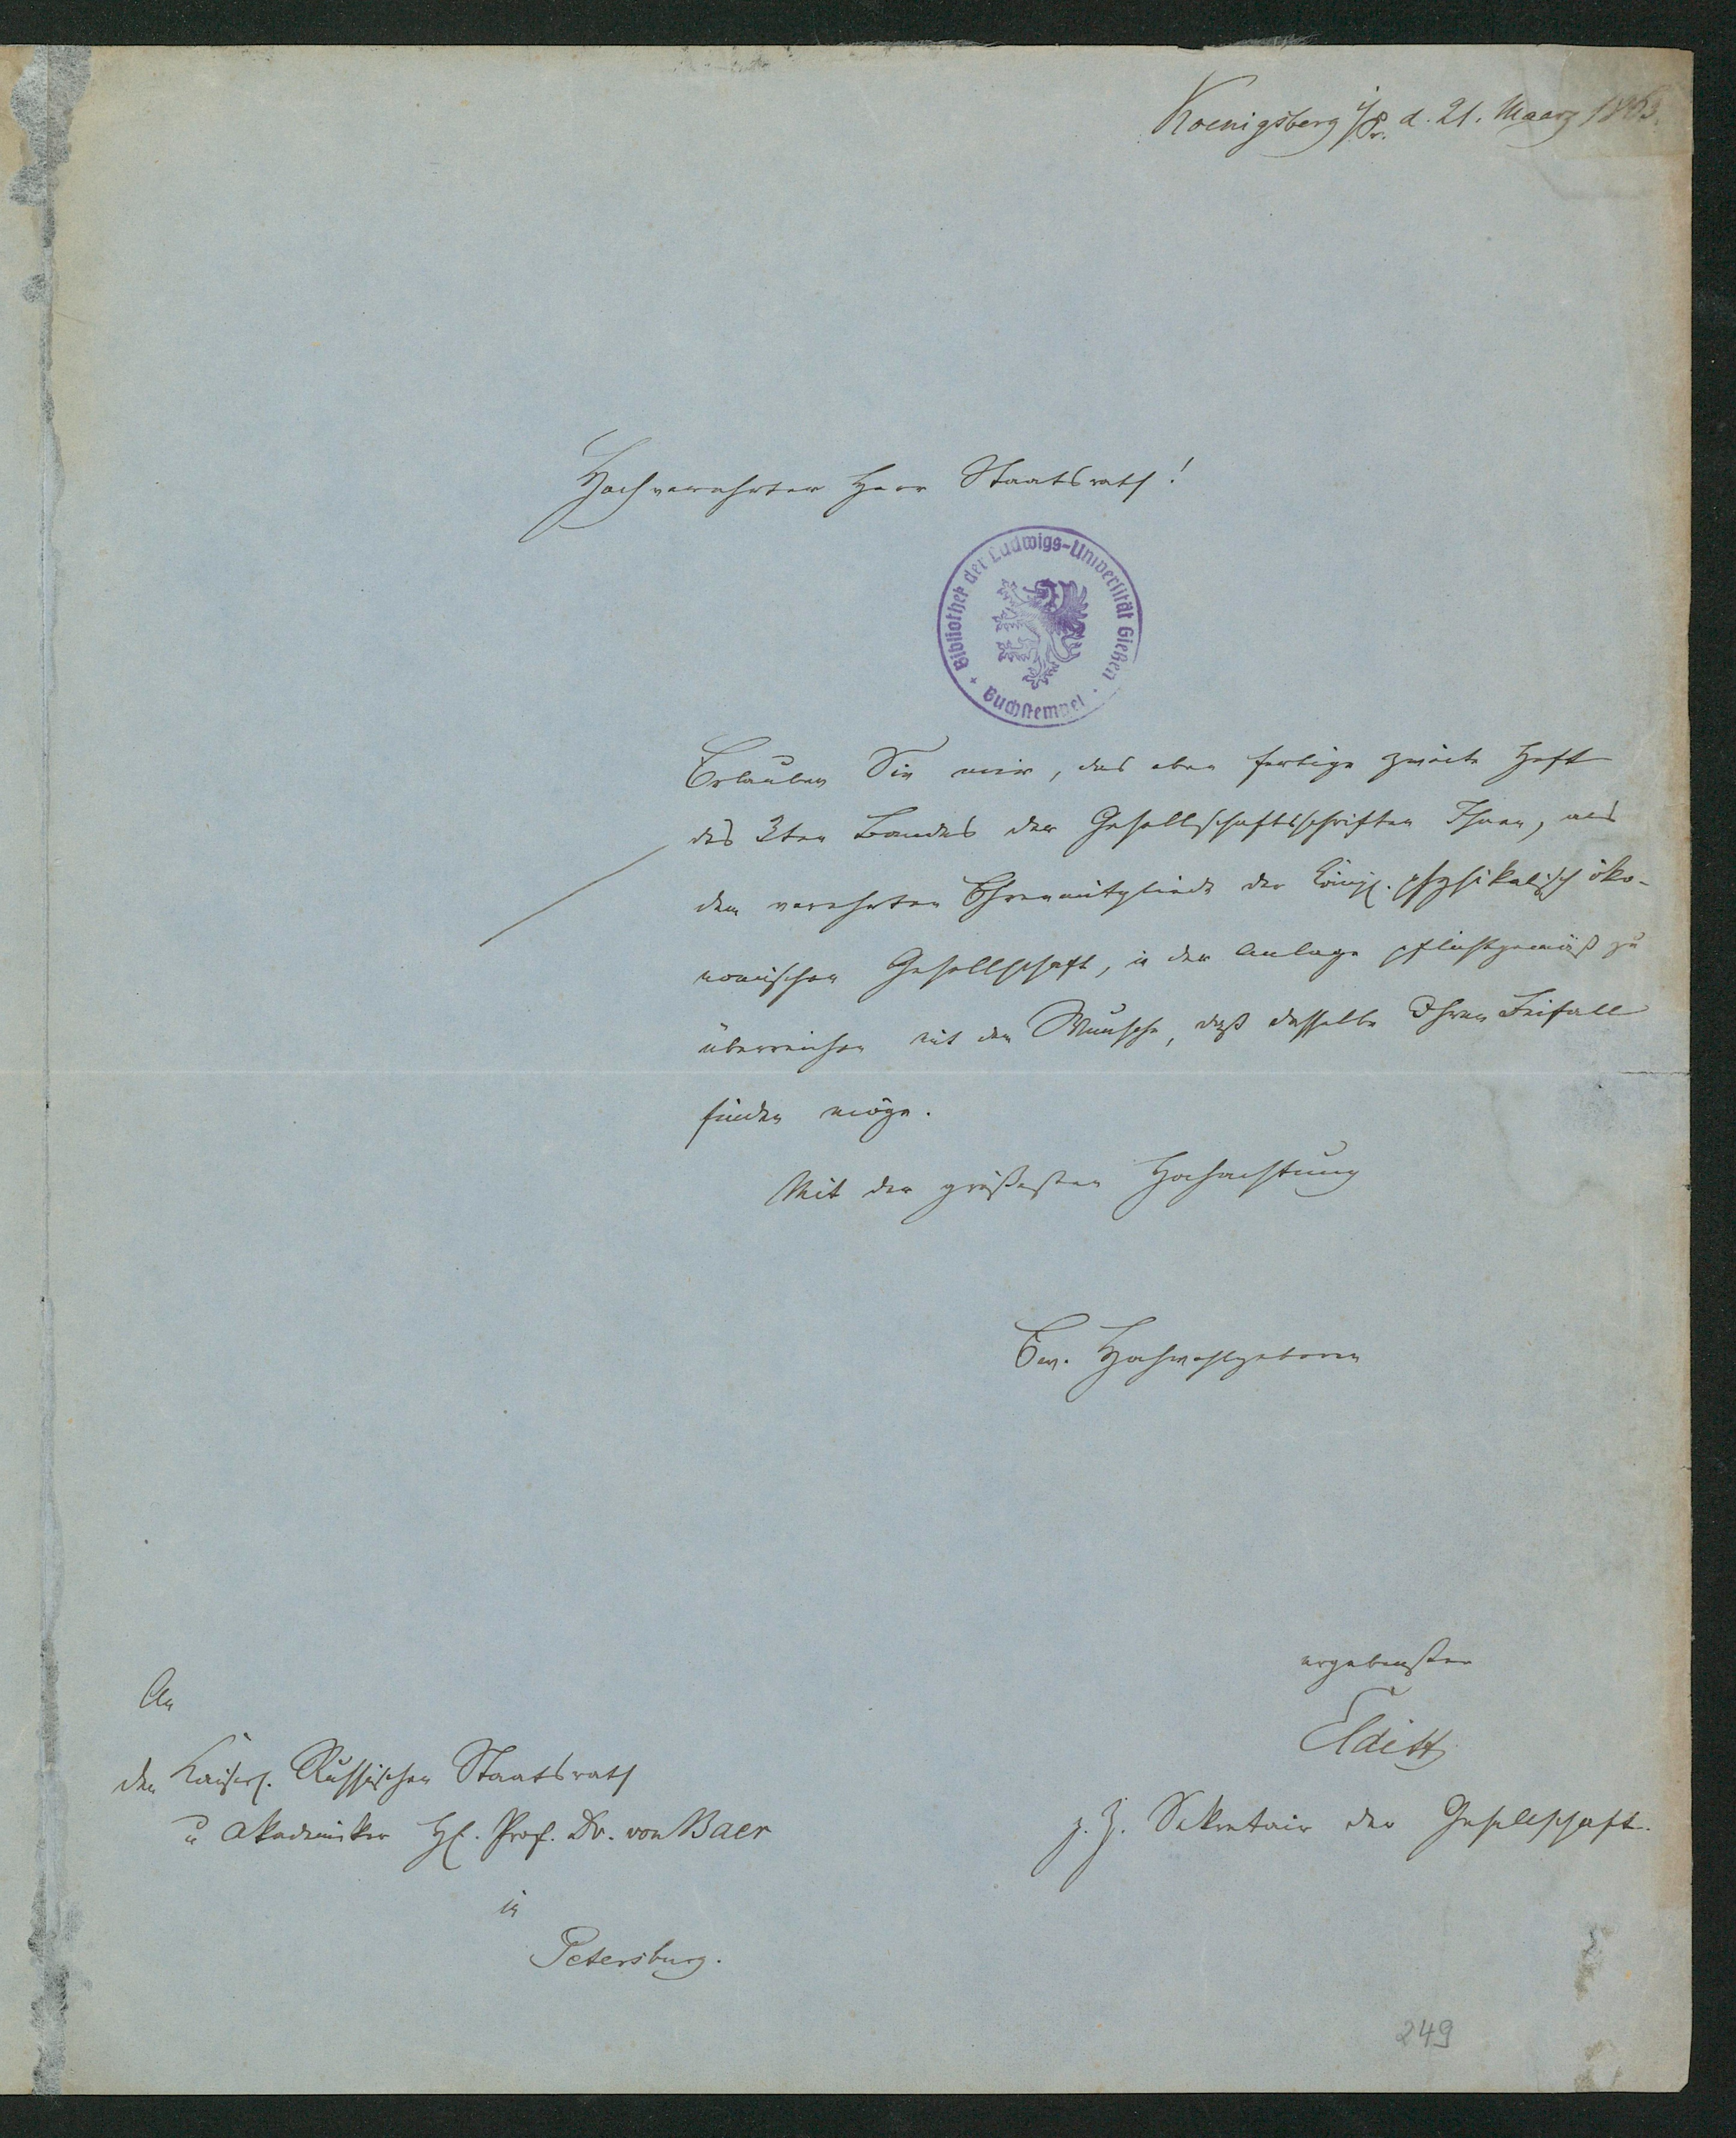 Koenigsberg i/Pr. d. 21. Maarz 1863.
Hochverehrter Herr Staatsrath!
Bibliothek der Ludwigs-Universität Gießen
Buchstempel
Erlauben Sie mir, das eben fertige zweite Heft
des 3ten Bandes der Gesellschaftsschriften Ihnen, als
dem verehrten Ehrenmitgliede der Königl. physikalisch öko-
nomischen Gesellschaft, in der Anlage pflichtgemäß zu
überreichen mit dem Wunsche, daß dasselbe Ihren Beifall
finden möge.
Mit der größesten Hochachtung
Ew. Hochwohlgeboren
ergebenster
Elditt
z. Z. Sekretair der Gesellschaft.
An
den Kaiserl. Russischen Staatsrath
u Akademiker H. Prof. Dr. von Baer
in
Petersburg.
249